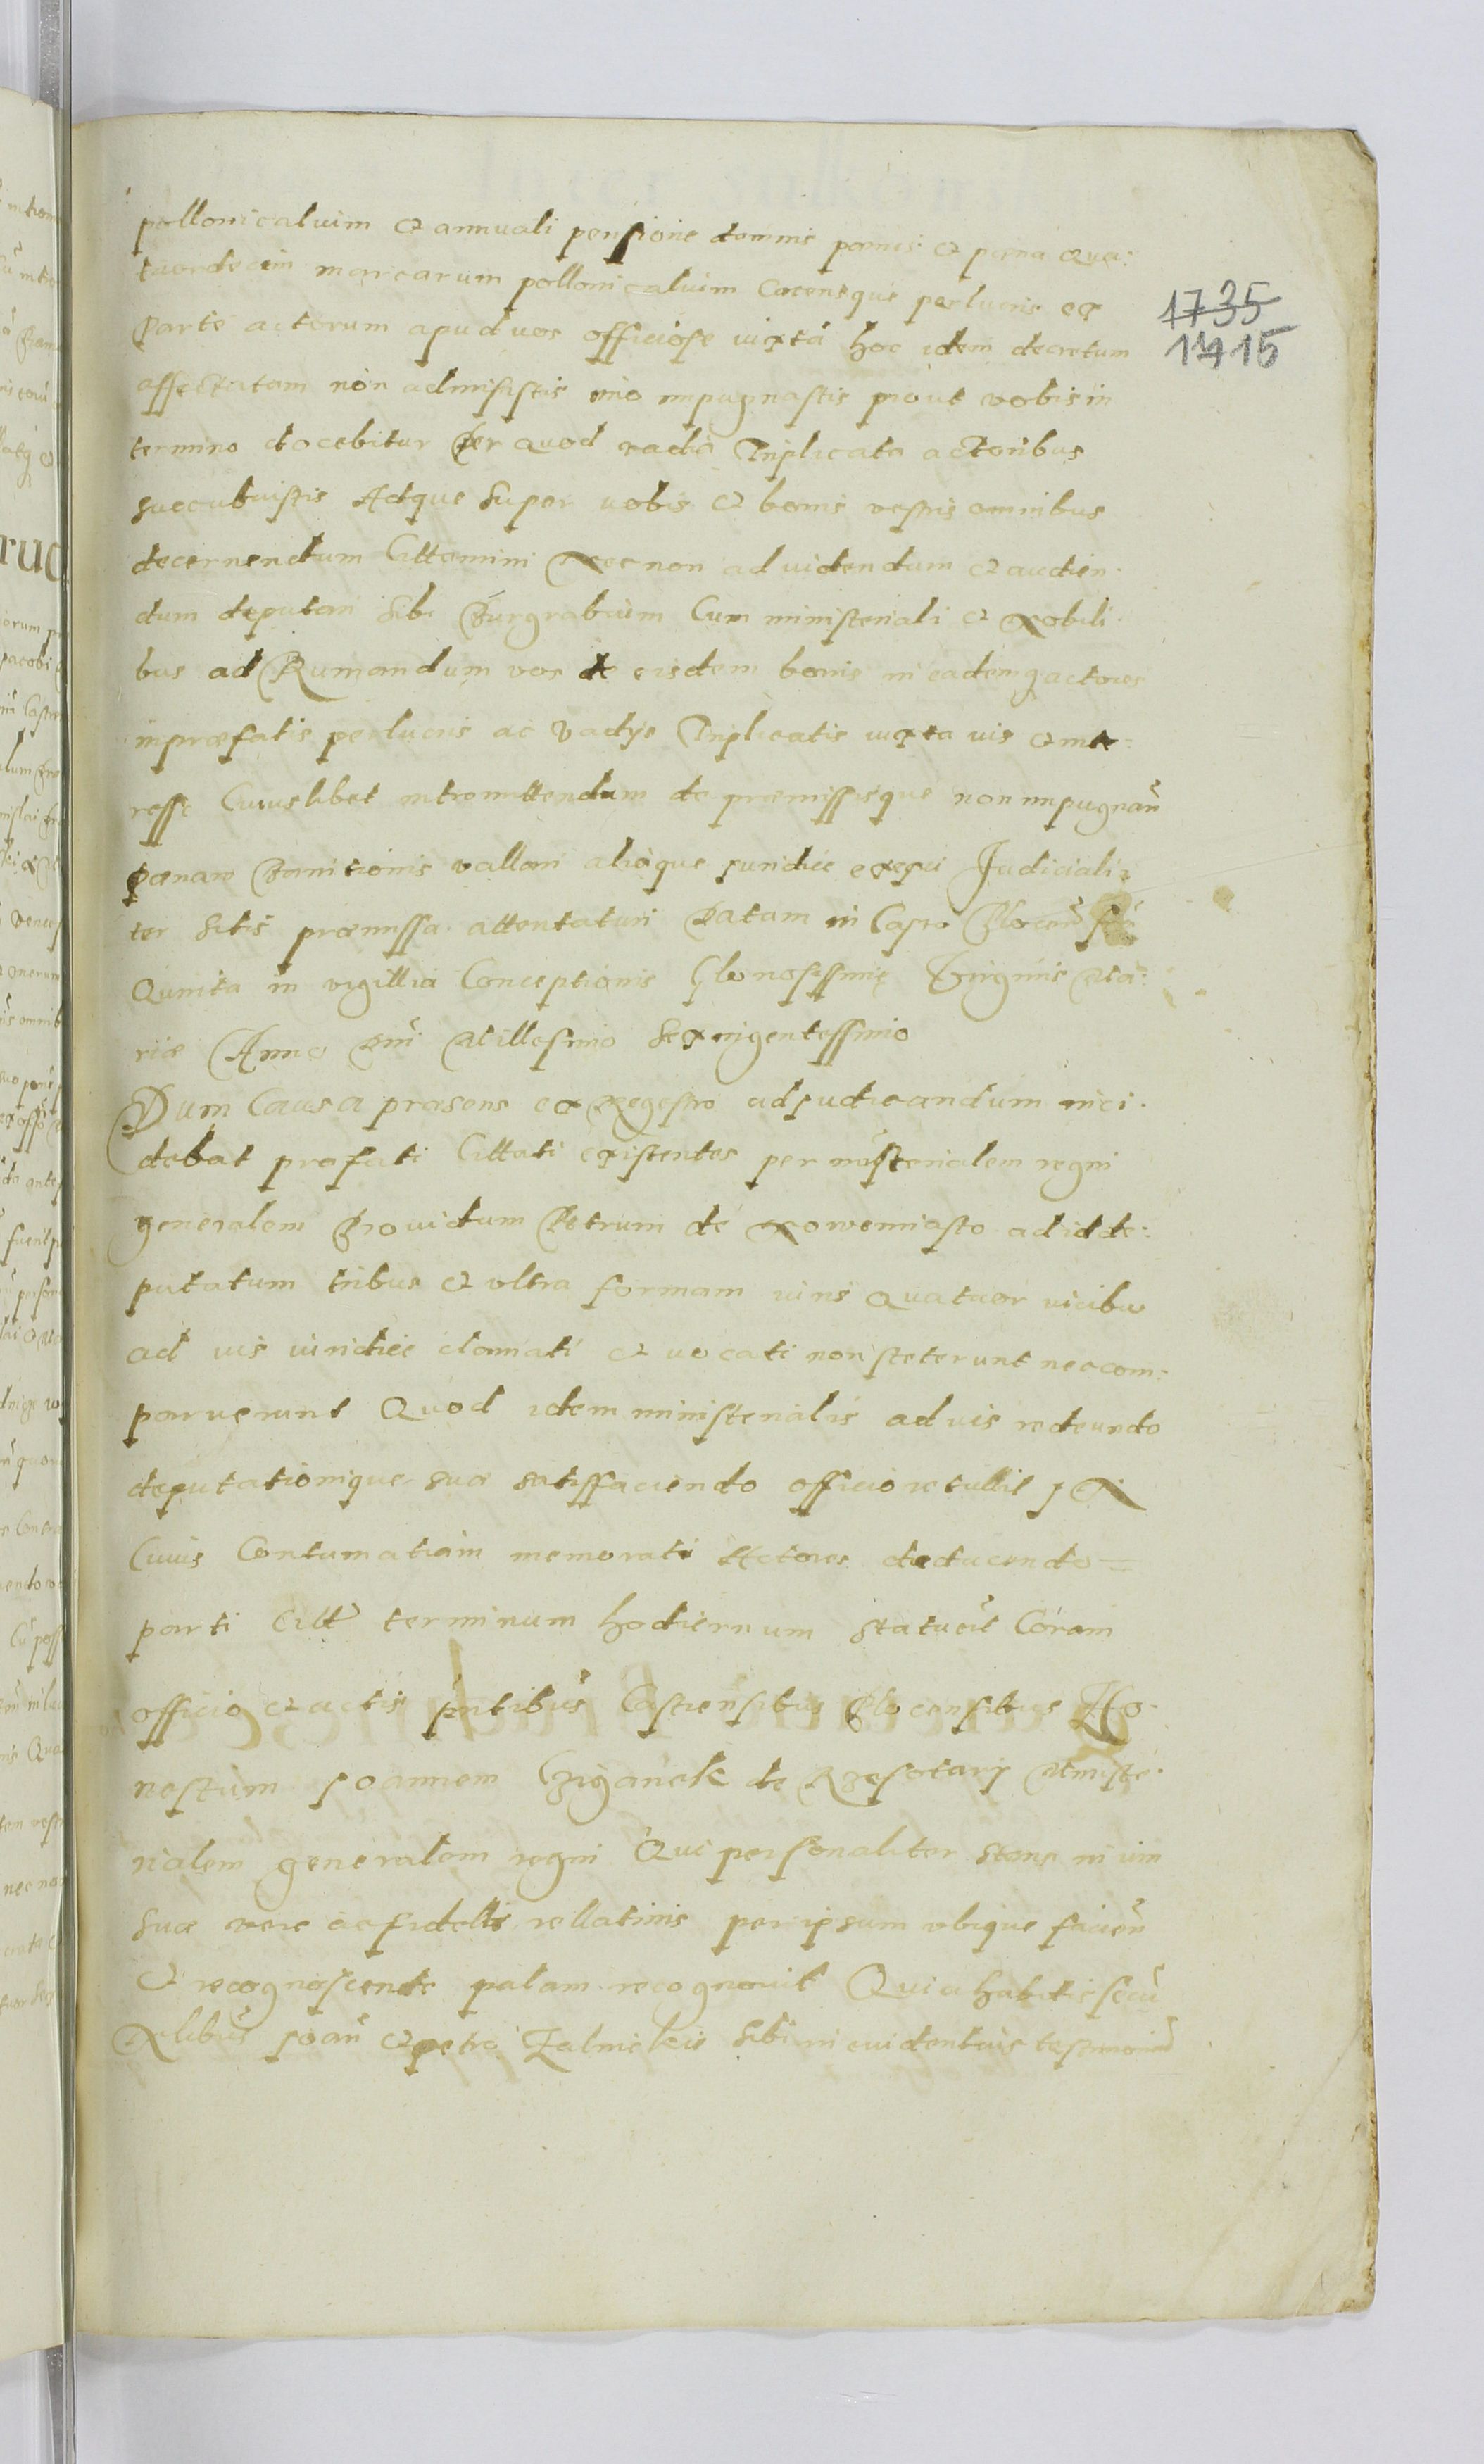 pollonicalium et annuali pensione damnis poenis et poena Qua:
tuordecim marcarum pollonicalium Caeterisque perlucris ex
Parte actorum apud vos officiose iuxta hoc idem decretum
affectatam non admisistis imo impugnastis prout vobis in
termino docebitur Per quod vadia Triplicata actoribus
succubuistis Atque super vobis et bonis vestris omnibus
decernendum Cittamini Necnon ad videndum et audien
dum deputari sibi Burgrabium Cum ministeriali et Nobili
bus ad Rumandum vos de eisdem bonis in eademq actores
in praefatis perlucris ac Vadys Triplicatis iuxta ius et inte:
resse Cuiuslibet intromittendum de praemissisque non impugnan
poenam Banitionis vallari aliaque iuridice exequi Judiciali:
ter sitis praemissa attentaturi Datum in Castro Plocen fer
Quinta in vigillia Conceptionis Gloriosissimę Virginis Ma:
riæ Anno Dni Millesimo Sexingentessimo
Dum Causa præsens ex Regestro adiudicandum inci
debat præfati Cittati existentes perministerialem regni
generalem Providum Petrum de Nowemiasto ad id de:
putatum tribus et ultra formam iuris Quatuor vicibus
ad ius iuridice clamati et vocati non steterunt nec com:
paruerunt Quod idem ministerialis ad ius redeundo
deputationique suæ satisfaciendo officio retullit IN
Cuius Contumatiam memorati Actores deducendo =
parti Citt terminum hodiernum statuerut Coram
officio et actis pntibus Castrensibus Plocensibus Ho
nestum Joannem Cziganek de Rzesotary Ministe
rialem generalem regni Qui personaliter stans in vim
suæ veræ ac fidelis rellationis per ipsum ubique facien
et recognoscende palam recognovit Quia habitis secu
Nlibus Joan et petro Zalinskie sibi in evidentius testimoniu
1735
1415